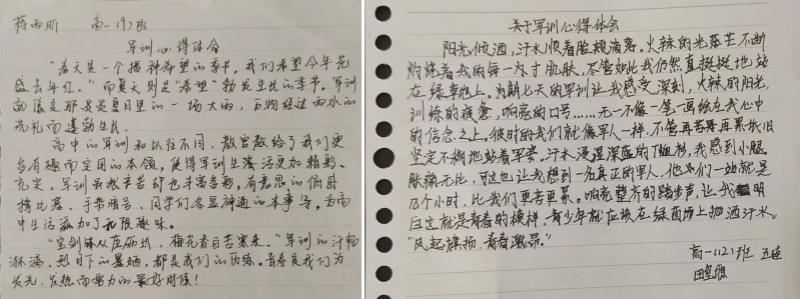 蒋雨昕 高一197班
军训心得体会
“春天是一个播种希望的季节。我们希望今年花
盛去年红。”而夏天则是“希望”勃发生长的季节。军训
就是夏日里的一场大雨，万物经过雨水的
洗礼而蓬勃生长。
高中的军训和以往不同，教官教给了我们更
多有趣而实用的本领，使得军训生活更加精彩、
充实。军训虽然辛苦却也丰富多彩，有意思的
比赛、手势暗号、同学们各显神通的本事等，为高
中生活添加了无限趣味。
“宝剑锋从磨砺出，梅花香自苦寒来。”军训的汗畅
淋漓、烈日下的暴晒，都是我们的历练。青春是我们为
发光、发热而努力的最好时候！
关于军训心得体会
阳光倾洒，汗水顺着脸颊滴落。火辣的光芒不断
灼烧着我的每一寸肌肤，尽管如此我仍然直挺挺地站
在绿草地上。为期七天的军训让我感受深刻，火辣的阳光，
训练的疲惫，响亮的口号……无一不像一笔一画绘在我心中
的信念之上。彼时的我们就像军人一样，不管再苦再累依旧
坚定不挪地站着军姿。汗水浸湿深蓝的T恤衫，我感到小腿
酸痛无比，可这也让我想到一名真正的军人，他们一站就是
几个小时，比我们更苦更累。响亮整齐的踏步声，让我明
白这就是青春的模样，青少年就应该在绿茵场上挥洒汗水。
“风起旗扬，青春激昂。”
高一(12)班 五连